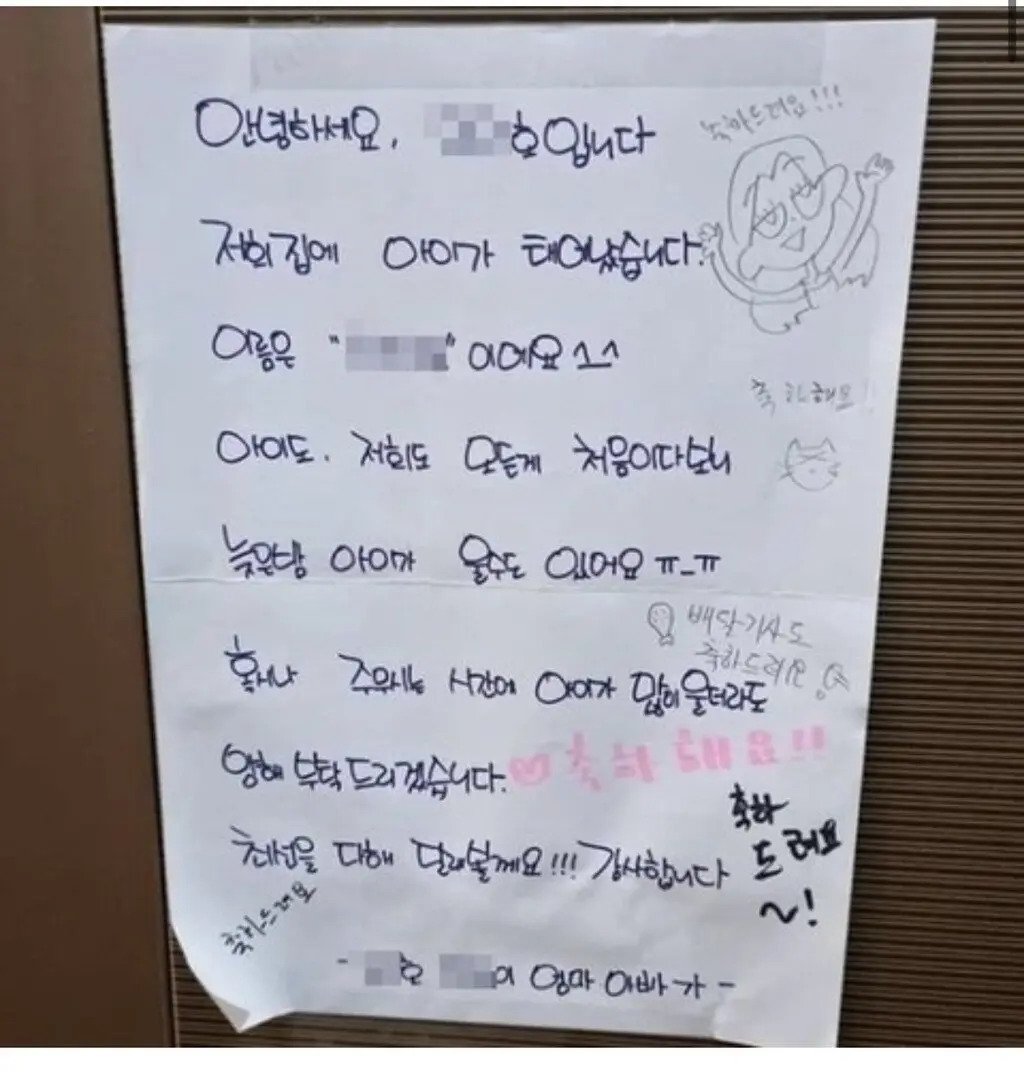 안녕하세요. 호입니다
축하드려요!!!
저희 집에 아이가 태어났습니다.
이름은 " " 이에요 ^^
축하해요!!
아이도. 저희도 모든게 처음이다보니
늦은밤 아이가 울수도 있어요 ㅠ_ㅠ
배달기사도
축하드려요
혹시나 주무시는 시간에 아이가 많이 울더라도
양해 부탁드리겠습니다.
축하해요!!
축하
드려요
~!
최선을 다해 달래볼께요!!! 감사합니다
축하드려요
- 호 이 엄마 아빠가 -